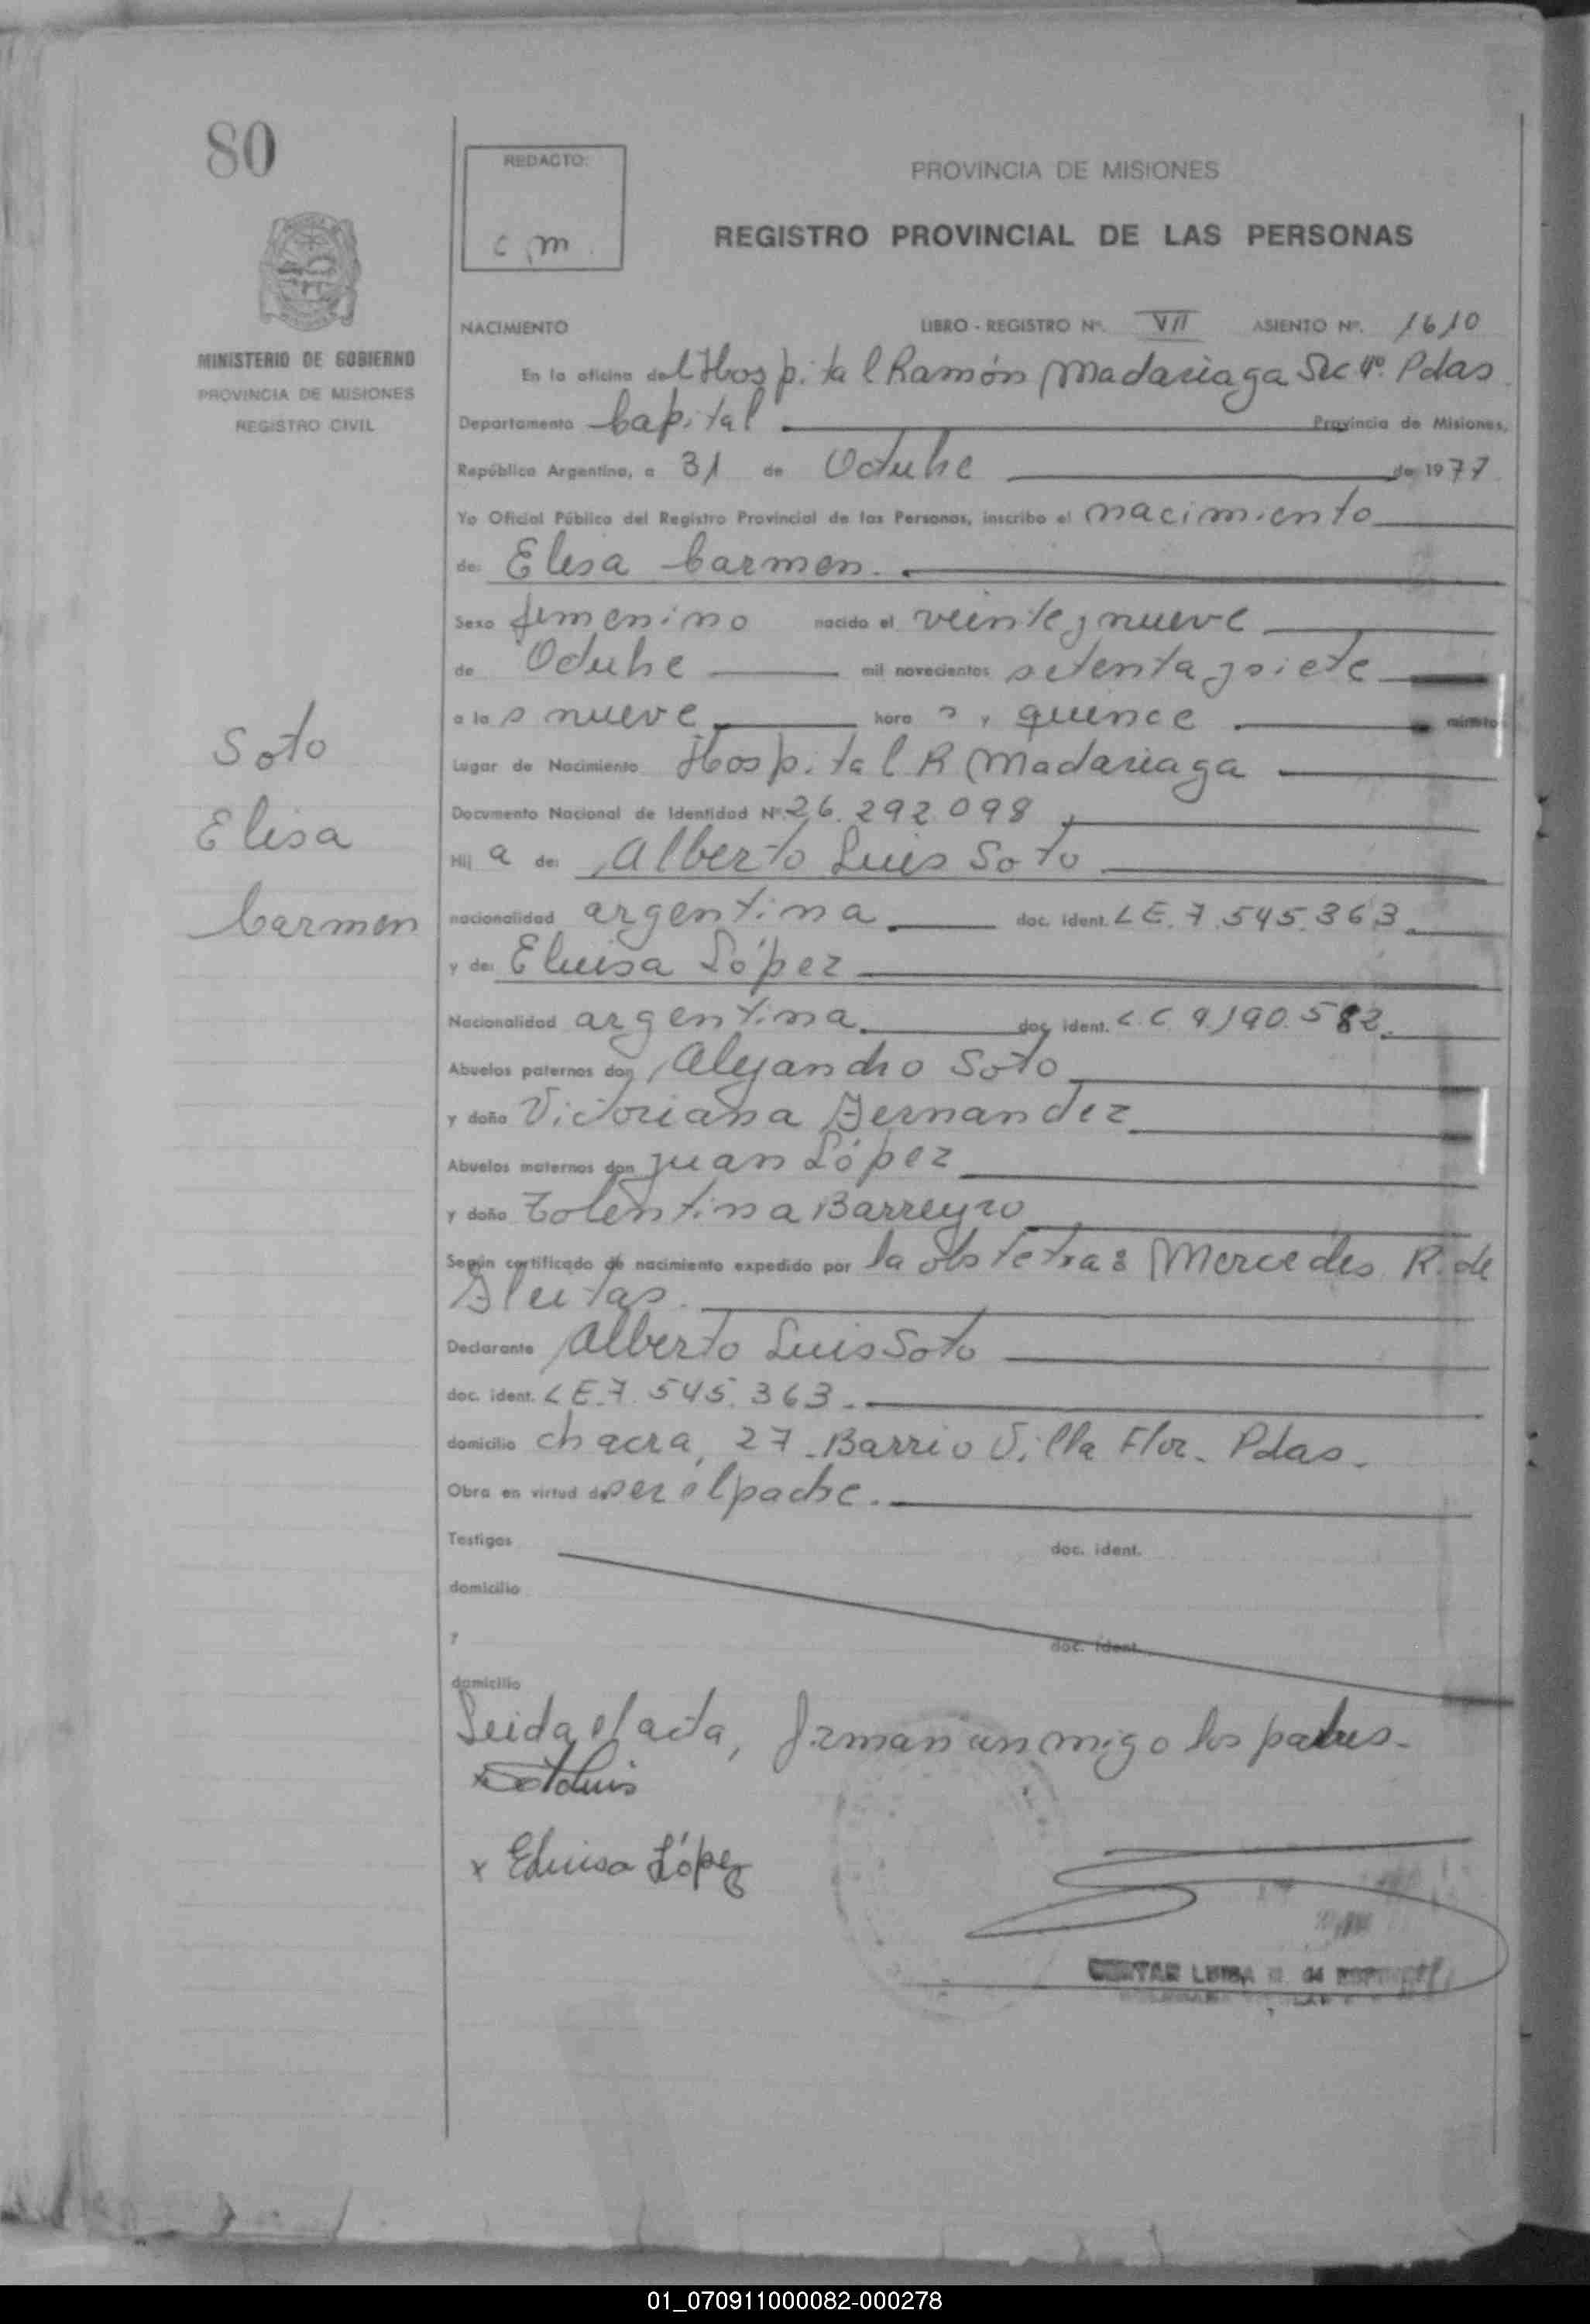 80
REDACTO:
c m.
PROVINCIA DE MISIONES
REGISTRO PROVINCIAL DE LAS PERSONAS
MINISTERIO DE GOBIERNO
PROVINCIA DE MISIONES
REGISTRO CIVIL
NACIMIENTO LIBRO - REGISTRO Nº. VII ASIENTO Nº. 1610
En la oficina del Hospital Ramón Madariaga Sec 4º. Pdas
Departamento Capital Provincia de Misiones,
República Argentina, a 31 de Octubre de 1977
Yo Oficial Público del Registro Provincial de las Personas, inscribo el nacimiento
de: Elisa Carmen.
Sexo femenino nacido el veinte y nueve
de Octubre mil novecientos setenta y siete
a las nueve hora s y quince minuto
Soto
Elisa
Carmen
Lugar de Nacimiento Hospital R Madariaga
Documento Nacional de Identidad Nº. 26.292.098
Hij a de: Alberto Luis Soto
nacionalidad argentina doc. ident. LE. 7.545.363.
y de: Eluisa López
Nacionalidad argentina doc. ident. L.C 9.190.582.
Abuelos paternos don Alejandro Soto
y doña Victoriana Fernandez
Abuelos maternos don Juan López
y doña Tolentina Barreyro
Según certificado de nacimiento expedido por la obstetra: Mercedes R. de
Fleitas.
Declarante Alberto Luis Soto
doc. ident. LE.7.545.363.-
domicilio chacra, 27 - Barrio Villa Flor. Pdas.
Obra en virtud de ser el padre.
Testigos doc. ident.
domicilio
y doc. ident.
domicilio
Leida el acta, firman conmigo los padres.-
x Soto Luis
x Eluisa López
LUISA
01_070911000082-000278